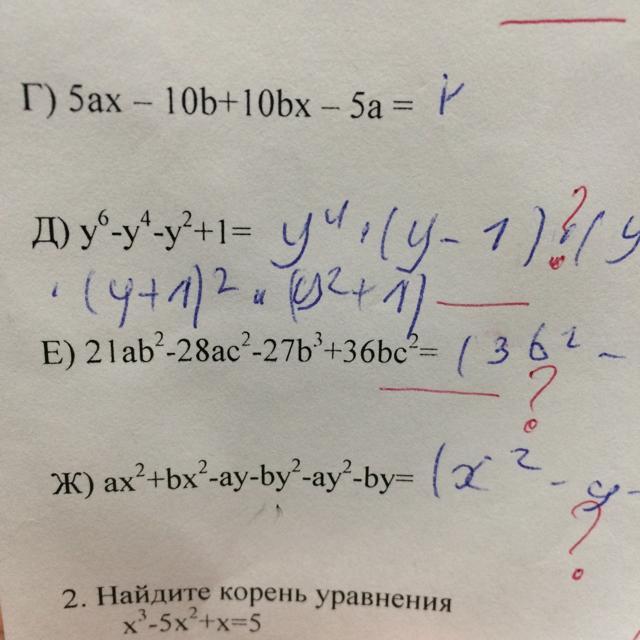 Г) 5ax – 10b+10bx – 5a =
Д) y⁶-y⁴-y²+1= y⁴·(y-1)?·(y
·(y+1)²·(y²+1)
Е) 21ab²-28ac²-27b³+36bc²= (3b² -
?
Ж) ax²+bx²-ay-by²-ay²-by= (x² - y -
?
2. Найдите корень уравнения
x³-5x²+x=5